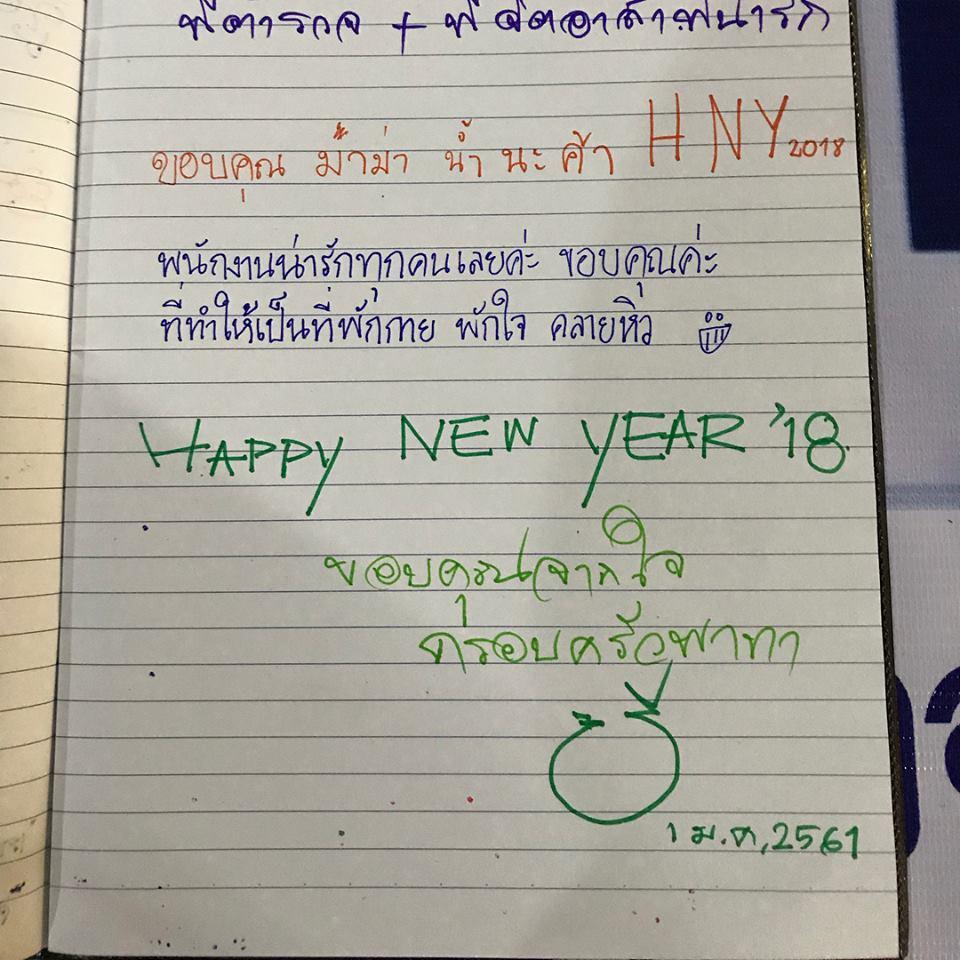 พี่ตำรวจ + พี่จิตอาสาน่ารัก
ขอบคุณ ม๋าม่า น้ำ นะค้า HNY 2018
พนักงานน่ารักทุกคนเลยค่ะ ขอบคุณค่ะ
ที่ทำให้เป็นที่พักกาย พักใจ คลายหิว
HAPPY NEW YEAR '18
ขอบคุณจากใจ
1 ม.ค, 2561